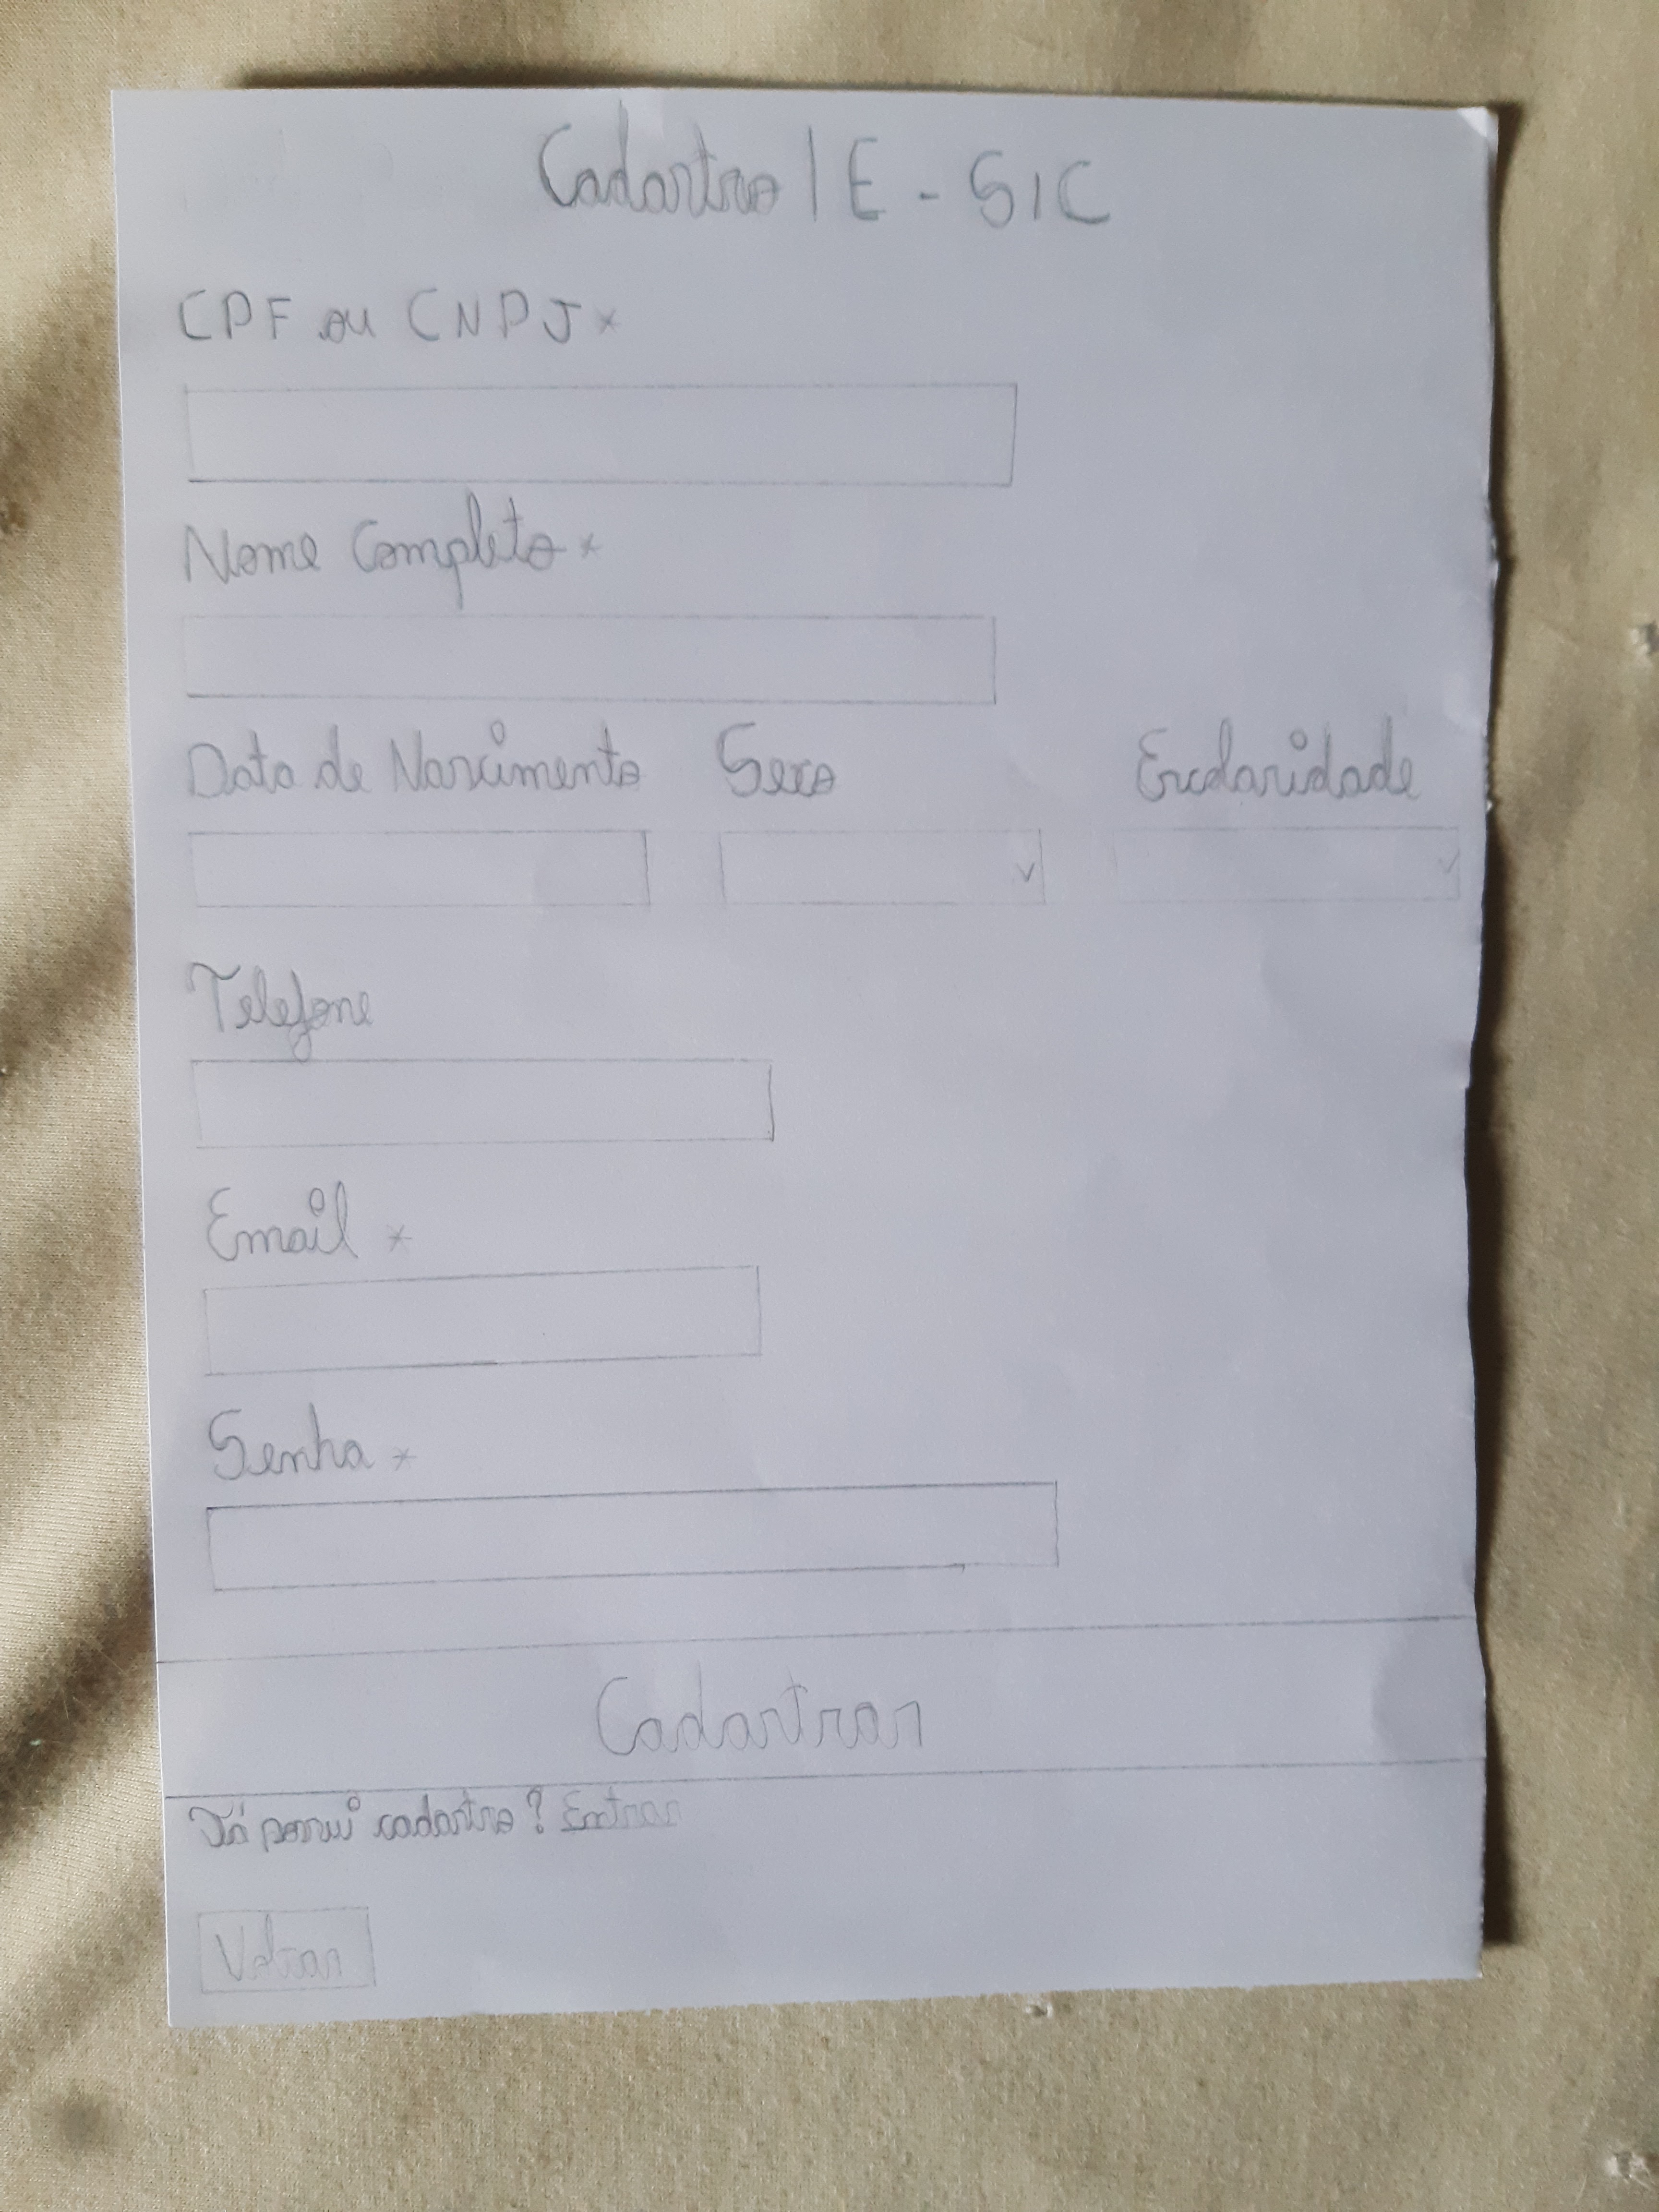 Cadastro | E - SIC
CPF ou CNPJ *
Nome Completo *
Data de Nascimento Sexo Escolaridade
Telefone
Email *
Senha *
Cadastrar
Já possui cadastro? Entrar
Voltar